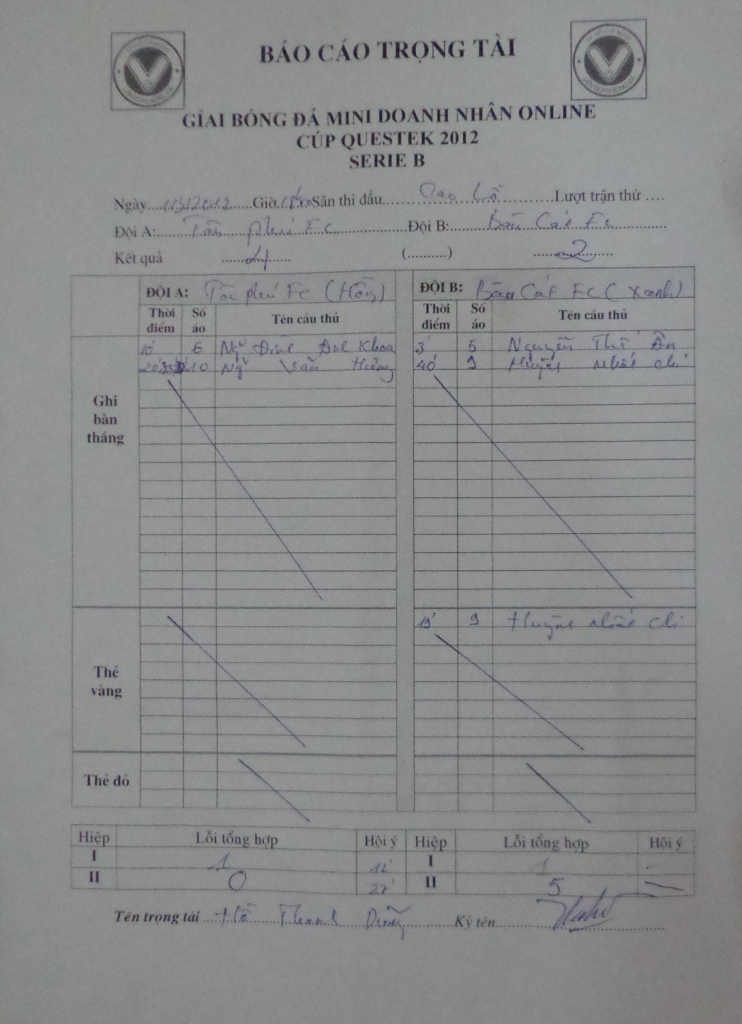 BÁO CÁO TRỌNG TÀI
GIẢI BÓNG ĐÁ MINI DOANH NHÂN ONLINE
CÚP QUESTEK 2012
SERIE B
Ngày Giờ Sân thi đấu Lượt trận thứ ....
Đội A: Tân phú Fc Đội B: Bàu Cát Fc
Kết quả 4 (..........) 2
ĐỘI A: Tân phú FC (Hồng) ĐỘI B: Bàu Cát FC (Xanh)
Thời điểm Số áo Tên cầu thủ Thời điểm Số áo Tên cầu thủ
Ghi bàn thắng
10' 6 Ng Đình Anh Khoa 3' 5 Nguyễn Thế Ân
10 Ng Văn Hưởng 40' 9 Huỳnh Nhất Chi
Thẻ vàng
19' 9 Huỳnh Nhất Chi
Thẻ đỏ
Hiệp Lỗi tổng hợp Hội ý Hiệp Lỗi tổng hợp Hội ý
I 1 I 1 –
II 0 27' II 5 –
Tên trọng tài Hồ Thanh Dũng Ký tên